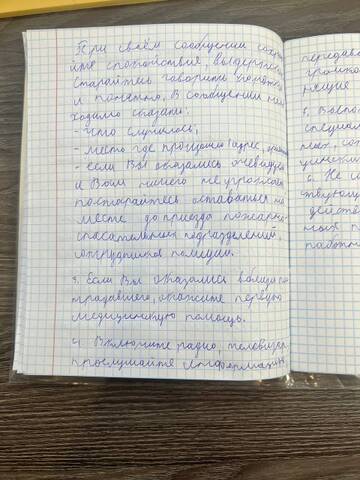 При своём сообщении сохран
йте спокойствие, выдержк
старайтесь говорить коротко
и понятно. В сообщении нео
ходимо сказать:
- что случилось;
- место где произошло (адрес,
- если Вы оказались очевидцем
и Вам ничего не угрожает
постарайтесь оставаться на
месте до приезда пожарно-
спасательных подразделений
сотрудников полиции.
3. Если Вы оказались вблизи по
традавшего, окажите первую
медицинскую помощь.
4. Включите радио, телевизор
прослушайте информацию
передава
громко
нящие
5. Воспо
специа
ных, со
6. Не
ству
дейст
ных
работн